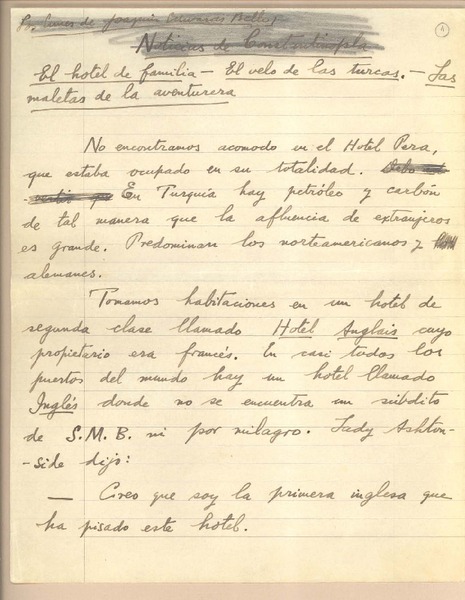 de Joaquín Edwards Bello
1
Noticias de Constantinopla
El hotel de familia — El velo de las turcas. — Las
maletas de la aventurera
No encontramos acomodo en el Hotel Pera,
que estaba ocupado en su totalidad. Debo
que En Turquía hay petróleo y carbón
de tal manera que la afluencia de extranjeros
es grande. Predominan los norteamericanos y
alemanes.
Tomamos habitaciones en un hotel de
segunda clase llamado Hotel Anglais cuyo
propietario era francés. En casi todos los
puertos del mundo hay un hotel llamado
Inglés donde no se encuentra un súbdito
de S.M.B. ni por milagro. Lady Ashton-
-side dijo:
— Creo que soy la primera inglesa que
ha pisado este hotel.